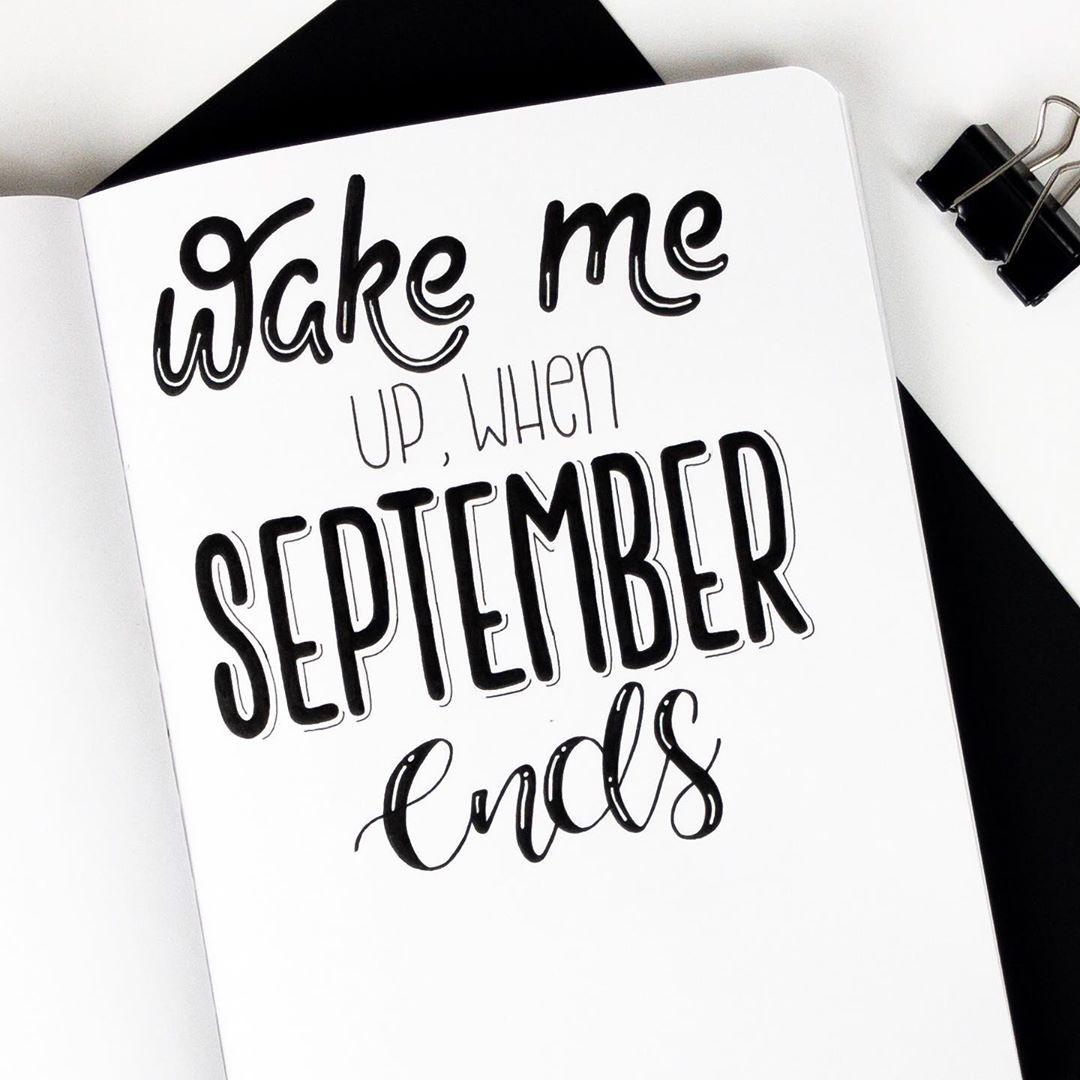 Wake me
UP, WHEN
SEPTEMBER
ends